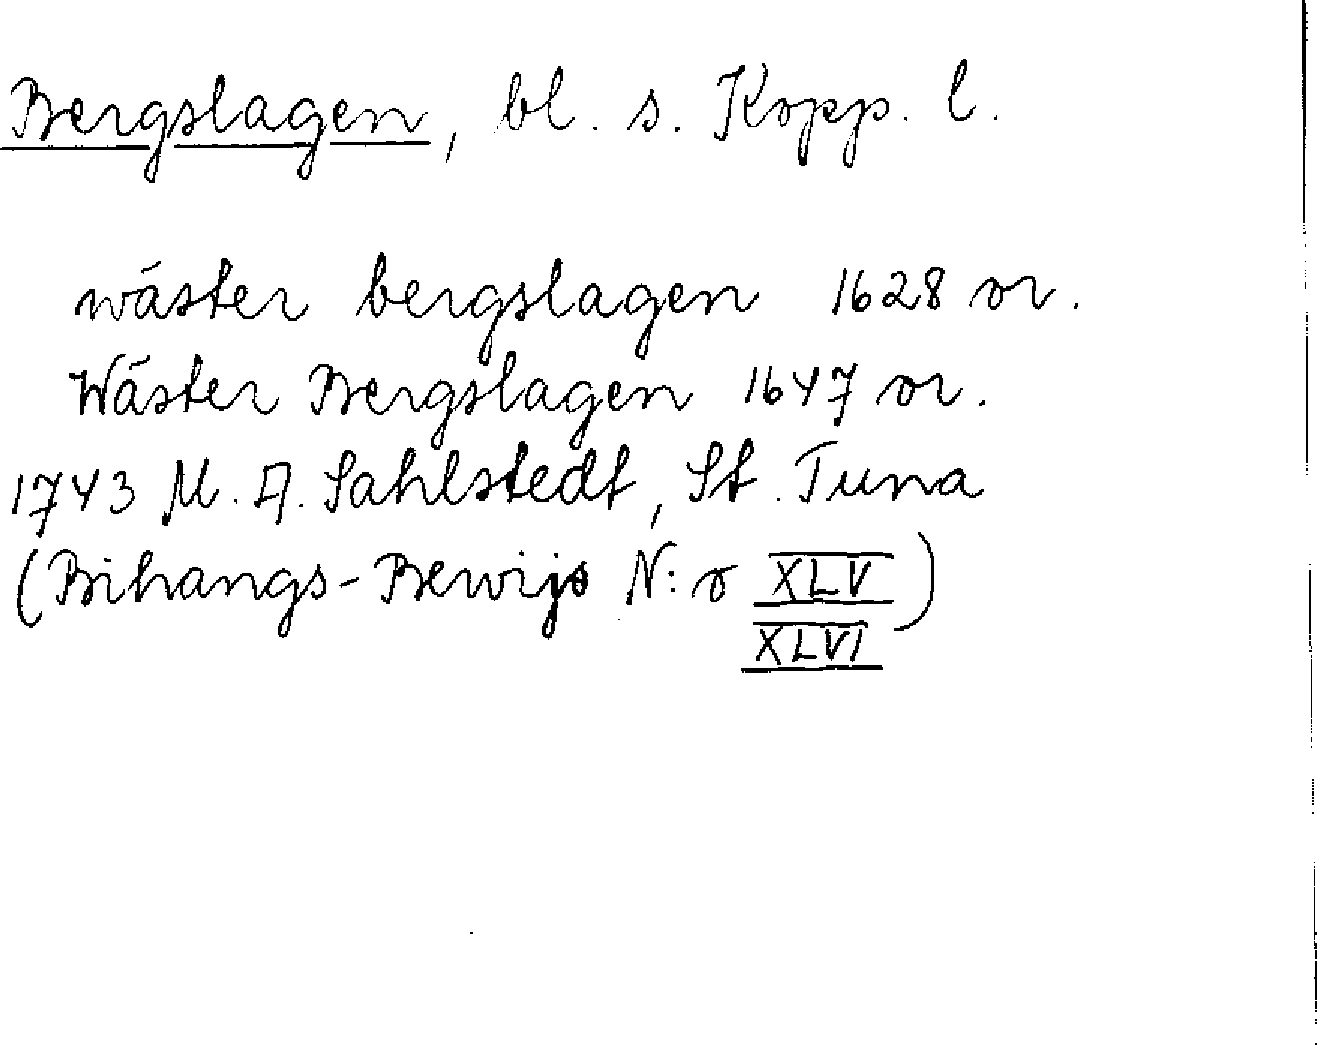 Bergslagen, bl. s. Kopp. l.
wäster bergslagen 1628 or.
Wäster Bergslagen 1647 or.
1743 M. A. Sahlstedt, St. Tuna
(Bihangs-Bewijs N:o XLV)
XLVI